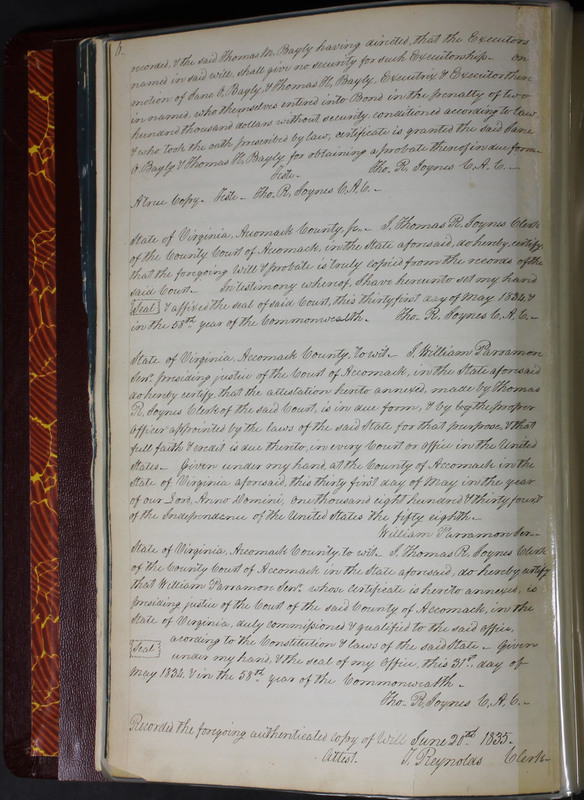 6.
recorded, & the said Thomas M. Bayly having directed, that the Executors
named in said will, shall give no security for such Executorship - On
motion of Jane O. Bayly, & Thomas H. Bayly, Executrix & Executor there
in named, who themselves entered into Bond in the penalty of two
hundred thousand dollars without security, conditioned according to law
& who took the oath prescribed by law, certificate is granted the said Jane
O. Bayly & Thomas H. Bayly for obtaining a probate thereof in due form
Teste - Tho. R. Joynes C. A. C. -
A true Copy - Teste - Tho. R. Joynes C. A. C. -
State of Virginia, Accomack County, - I, Thomas R. Joynes Clerk
of the County Court of Accomack, in the State aforesaid, do hereby, certify,
that the foregoing Will & probate is truly copied from the records of the
said Court - In testimony whereof, I have hereunto set my hand
Seal & affixed the seal of said Court, this thirty first day of May 1834 &
in the 58th year of the Commonwealth - Tho. R. Joynes C. A. C. -
State of Virginia, Accomack County, to wit - I, William Parramon
Senr. presiding justice of the Court of Accomack, in the State aforesaid
do hereby certify, that the attestation hereto annexed, made by Thomas
R. Joynes Clerk of the said Court, is in due form, & by the proper
officer appointed by the laws of the said State for that purpose, & that
full faith & credit is due thereto, in every Court or office in the United
States - Given under my hand, at the County of Accomack in the
State of Virginia aforesaid, this thirty first day of May in the year
of our Lord, Anno Domini, one thousand eight hundred & thirty four &
of the Independence of the United States the fifty eighth -
William Parramon Senr -
State of Virginia, Accomack County, to wit - I, Thomas R. Joynes Clerk
of the County Court of Accomack in the State aforesaid, do hereby certify
that William Parramon Senr. whose certificate is hereto annexed, is
presiding justice of the Court of the said County of Accomack, in the
State of Virginia, duly commissioned & qualified to the said office,
acording to the Constitution & laws of the said State - Given
Seal under my hand, & the seal of my office, this 31st. day of
May 1834, & in the 58th year of the Commonwealth -
Tho. R. Joynes C. A. C. -
Recorded the foregoing authenticated copy of Will June 20nd 1835.
Attest. T. Reynolds Clerk -